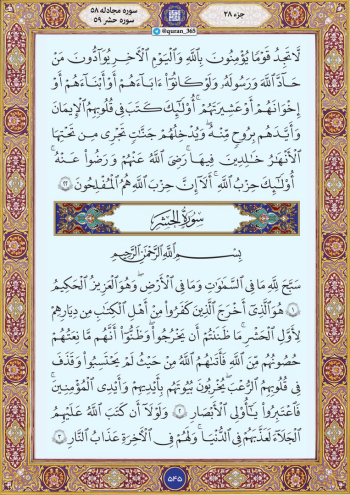 سوره مجادله ۵۸
سوره حشر ۵۹
جزء ۲۸
@quran_365
لَّا تَجِدُ قَوْمًا يُؤْمِنُونَ بِاللَّهِ وَالْيَوْمِ الْآخِرِ يُوَآدُّونَ مَنْ
حَآدَّ اللَّهَ وَرَسُولَهُ وَلَوْ كَانُوٓا۟ ءَابَآءَهُمْ أَوْ أَبْنَآءَهُمْ أَوْ
إِخْوَٰنَهُمْ أَوْ عَشِيرَتَهُمْ ۚ أُو۟لَٰٓئِكَ كَتَبَ فِى قُلُوبِهِمُ الْإِيمَٰنَ
وَأَيَّدَهُم بِرُوحٍ مِّنْهُ ۖ وَيُدْخِلُهُمْ جَنَّٰتٍ تَجْرِى مِن تَحْتِهَا
الْأَنْهَٰرُ خَٰلِدِينَ فِيهَا ۚ رَضِىَ اللَّهُ عَنْهُمْ وَرَضُوا۟ عَنْهُ ۚ
أُو۟لَٰٓئِكَ حِزْبُ اللَّهِ ۚ أَلَآ إِنَّ حِزْبَ اللَّهِ هُمُ الْمُفْلِحُونَ ۝٢٢
سُورَةُ الْحَشْرِ
بِسْمِ اللَّهِ الرَّحْمَٰنِ الرَّحِيمِ
سَبَّحَ لِلَّهِ مَا فِى السَّمَٰوَٰتِ وَمَا فِى الْأَرْضِ ۖ وَهُوَ الْعَزِيزُ الْحَكِيمُ
۝١ هُوَ الَّذِىٓ أَخْرَجَ الَّذِينَ كَفَرُوا۟ مِنْ أَهْلِ الْكِتَٰبِ مِن دِيَٰرِهِمْ
لِأَوَّلِ الْحَشْرِ ۚ مَا ظَنَنتُمْ أَن يَخْرُجُوا۟ ۖ وَظَنُّوٓا۟ أَنَّهُم مَّانِعَتُهُمْ
حُصُونُهُم مِّنَ اللَّهِ فَأَتَىٰهُمُ اللَّهُ مِنْ حَيْثُ لَمْ يَحْتَسِبُوا۟ ۖ وَقَذَفَ
فِى قُلُوبِهِمُ الرُّعْبَ ۚ يُخْرِبُونَ بُيُوتَهُم بِأَيْدِيهِمْ وَأَيْدِى الْمُؤْمِنِينَ
فَاعْتَبِرُوا۟ يَٰٓأُو۟لِى الْأَبْصَٰرِ ۝٢ وَلَوْلَآ أَن كَتَبَ اللَّهُ عَلَيْهِمُ
الْجَلَآءَ لَعَذَّبَهُمْ فِى الدُّنْيَا ۖ وَلَهُمْ فِى الْآخِرَةِ عَذَابُ النَّارِ ۝٣
۵۴۵